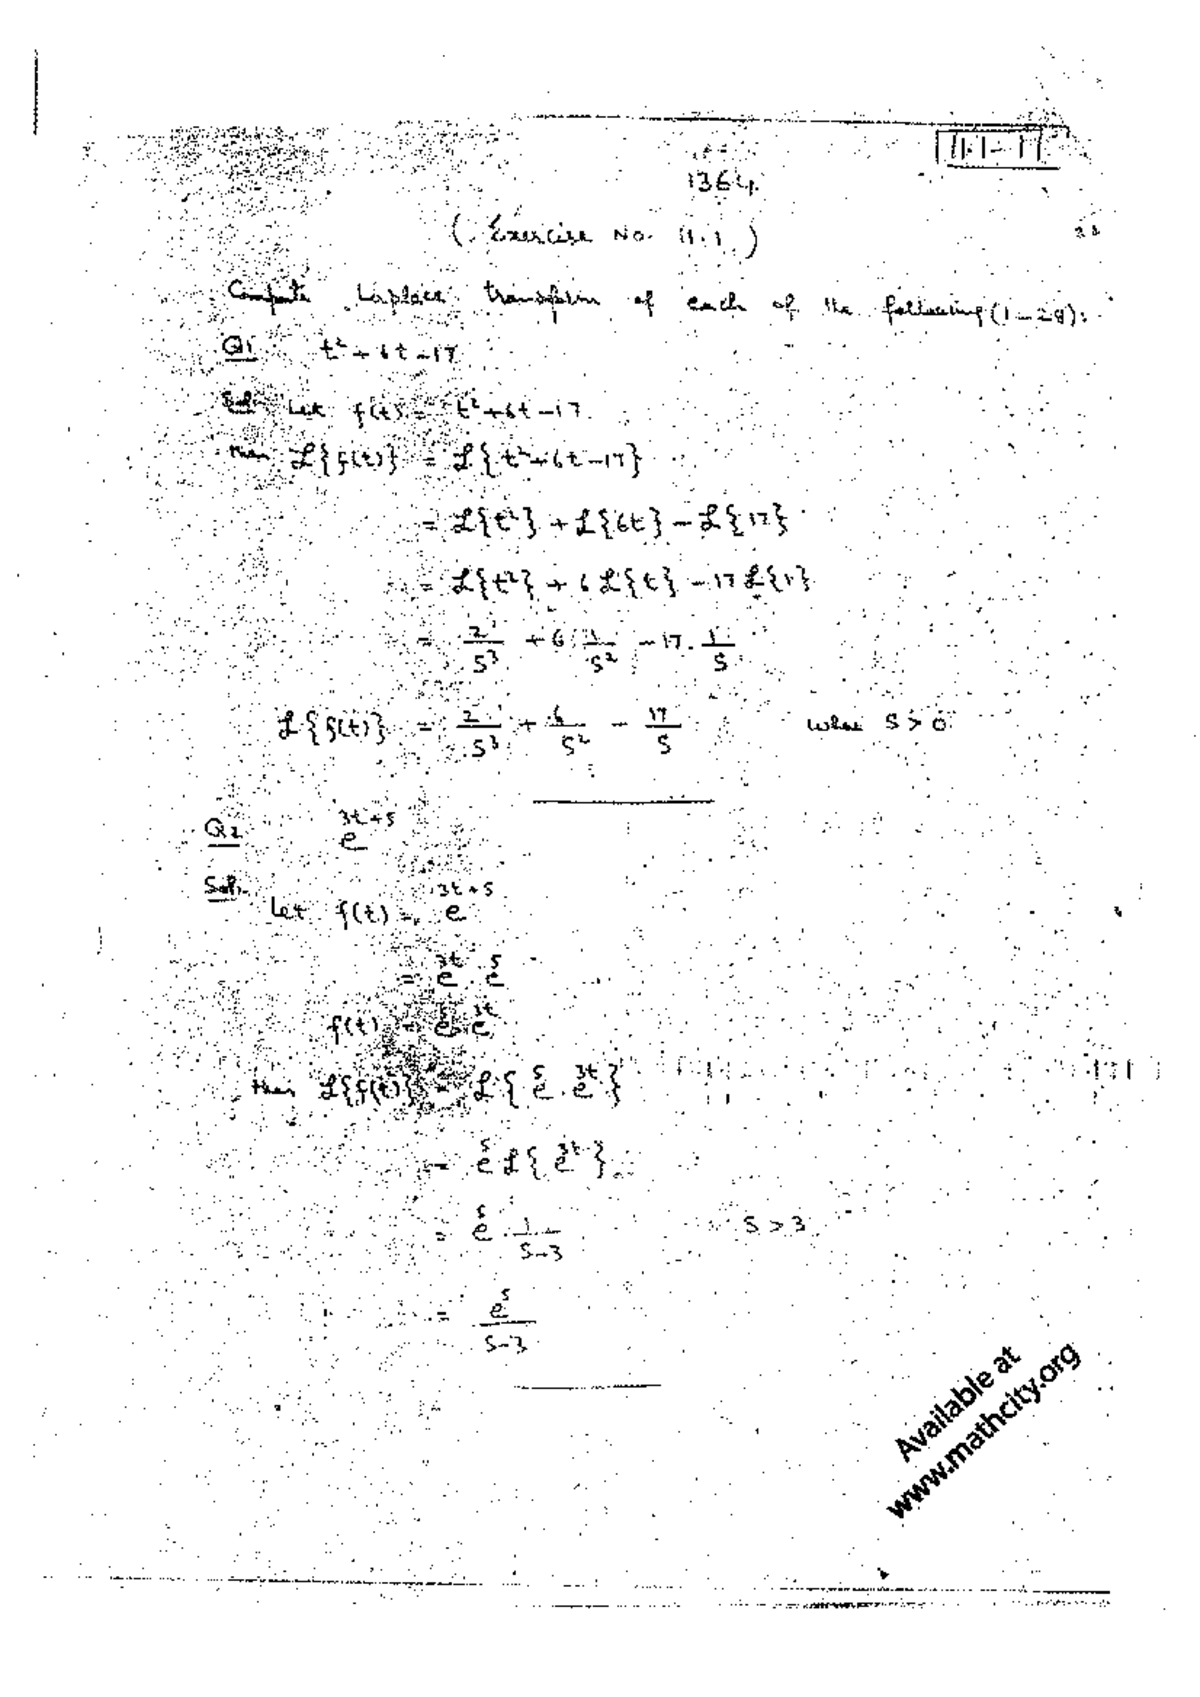 11.1-1
1364
(Exercise No. 11.1)
Compute Laplace transform of each of the following (1-28):
Q1 t²+6t-17
Sol. Let f(t) = t²+6t-17
then ℒ{f(t)} = ℒ{t²+6t-17}
= ℒ{t²} + ℒ{6t} - ℒ{17}
= ℒ{t²} + 6ℒ{t} - 17ℒ{1}
= 2/S³ + 6·1/S² - 17·1/S
ℒ{f(t)} = 2/S³ + 6/S² - 17/S where S > 0
Q2 e^(3t+5)
Sol. Let f(t) = e^(3t+5)
= e^(3t) · e^5
f(t) = e^5 · e^(3t)
then ℒ{f(t)} = ℒ{e^5 · e^(3t)}
= e^5 ℒ{e^(3t)}
= e^5 · 1/(S-3) S > 3
= e^5/(S-3)
Available at
www.mathcity.org